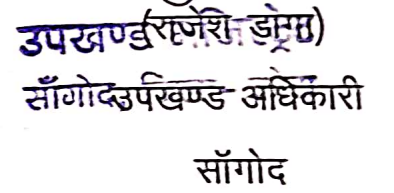 उपखण्ड (राजेश डोगरा)
सॉंगोद उपखण्ड अधिकारी
सॉंगोद